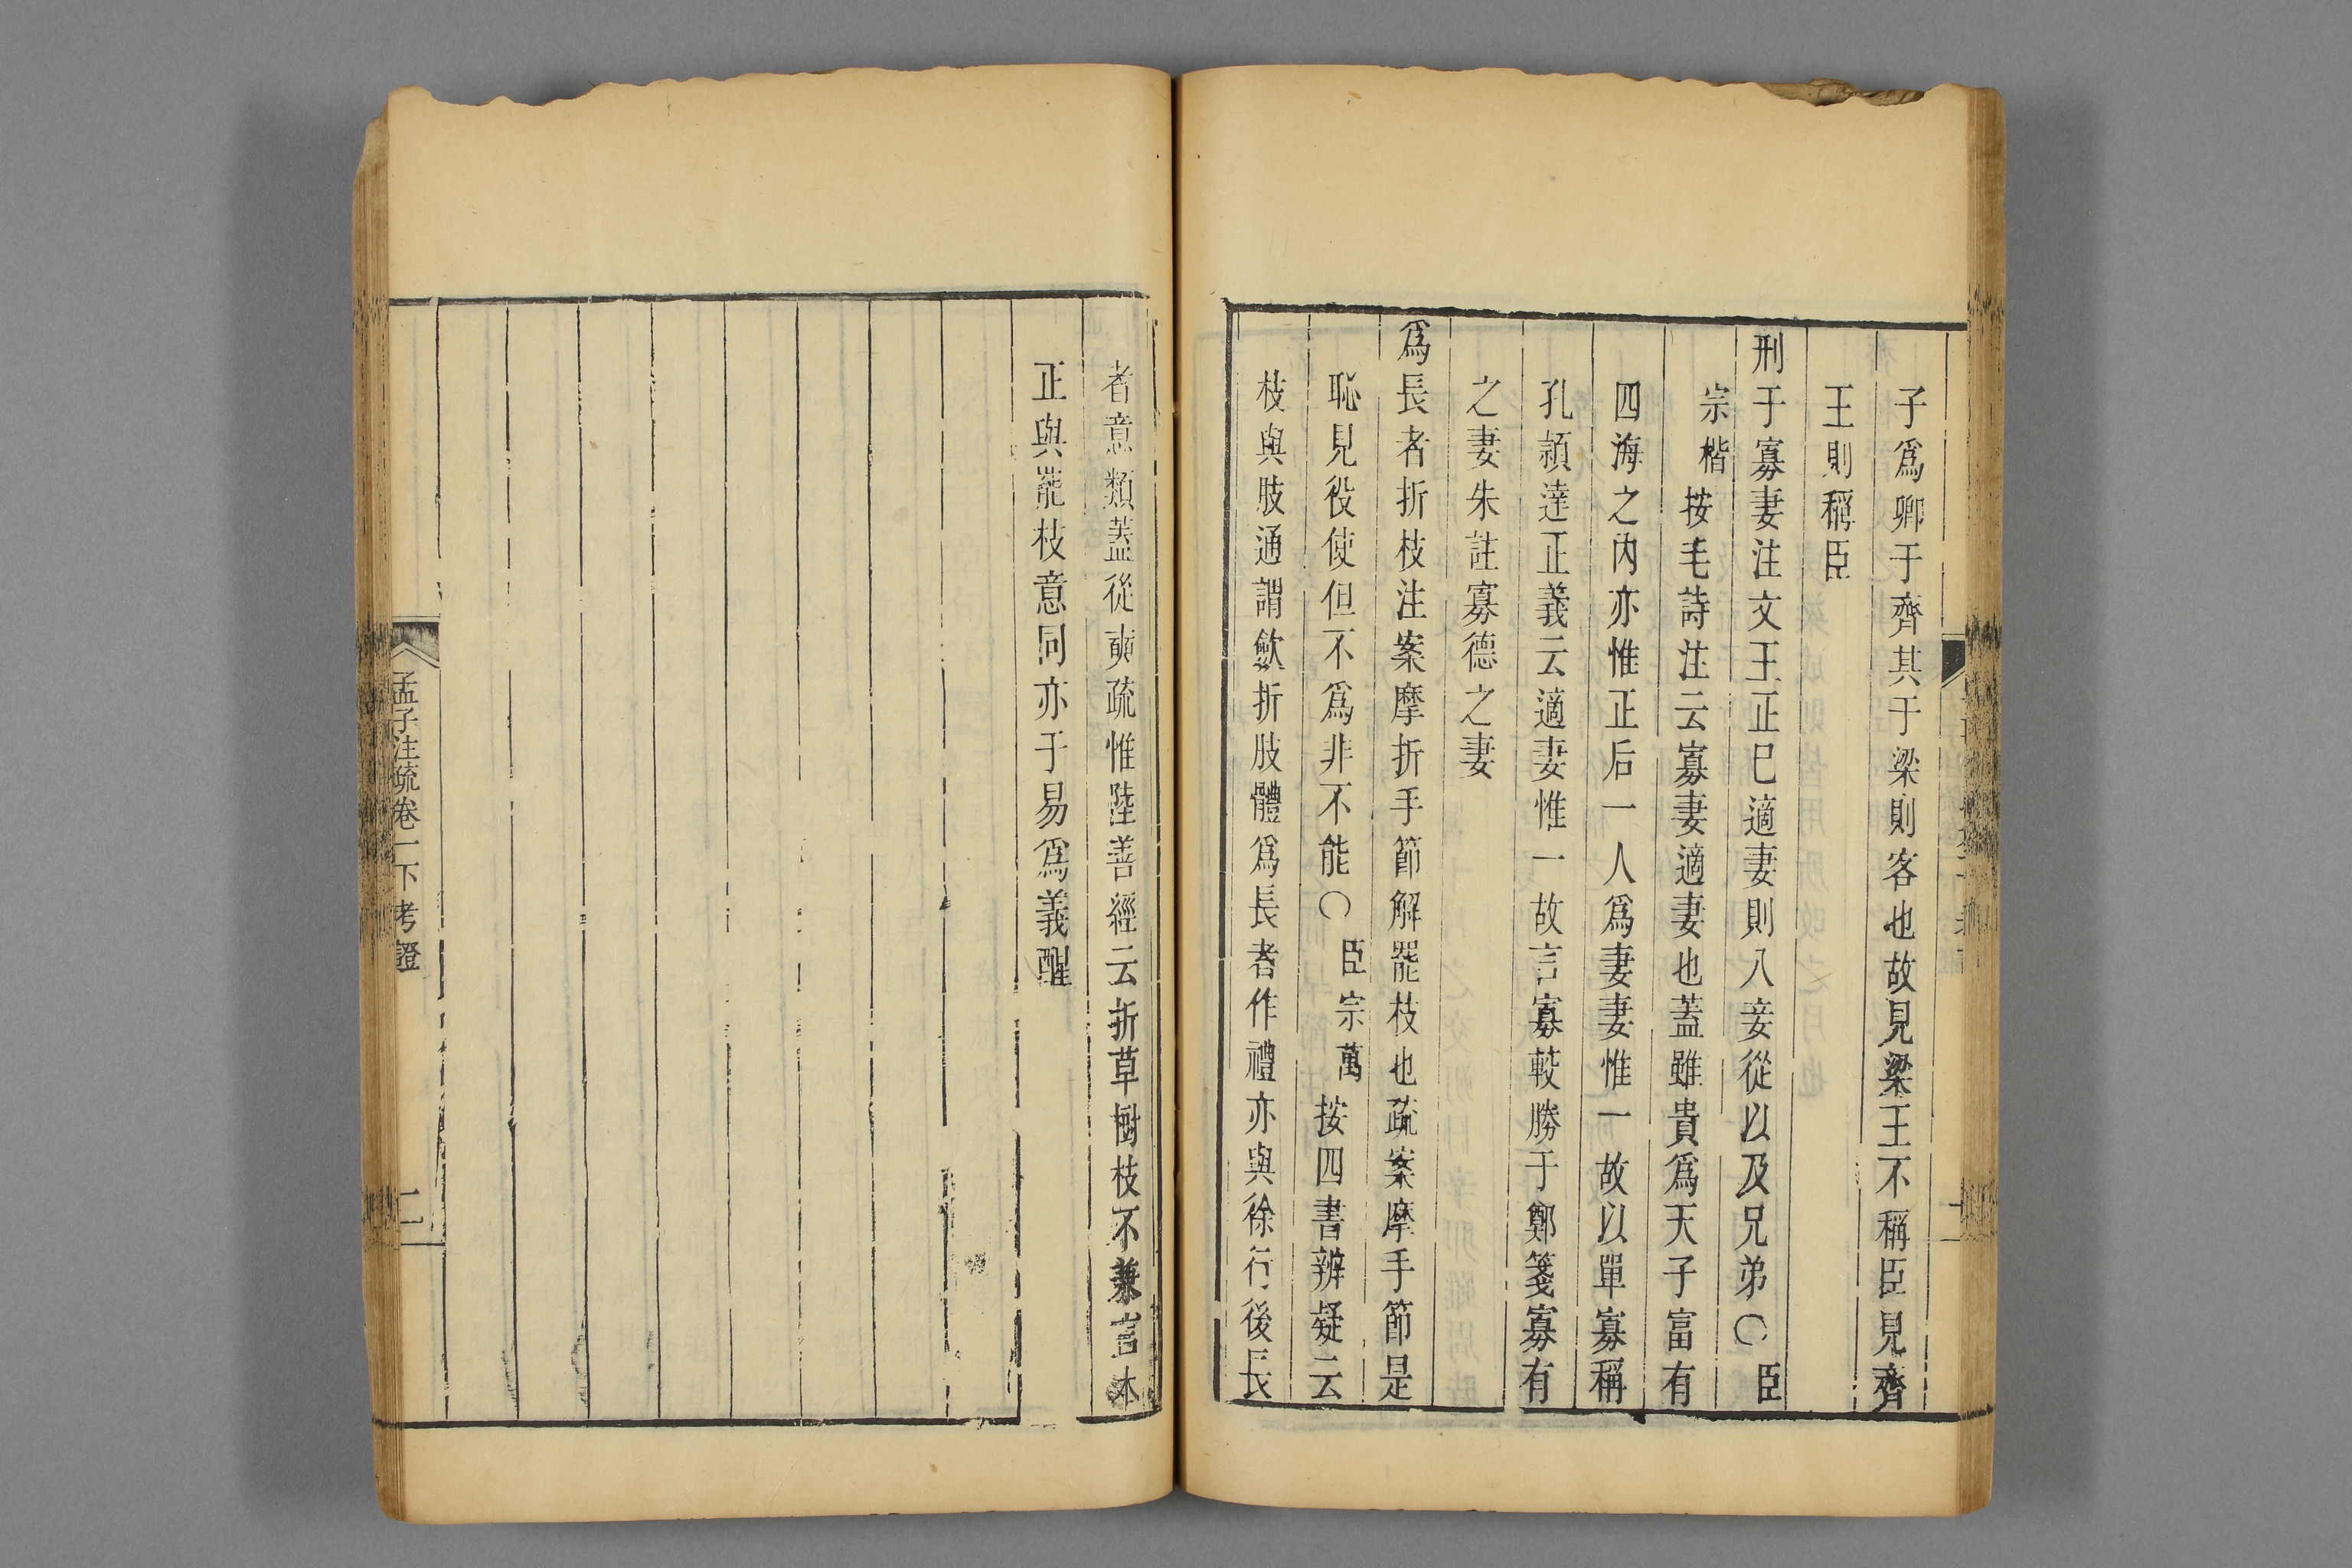 子爲卿于齊其于梁則客也故見梁王不稱臣見齊
王則稱臣
刑于寡妻注文王正巳適妻則八妾從以及兄弟〇臣
宗楷按毛詩注云寡妻適妻也蓋雖貴爲天子富有
四海之內亦惟正后一人爲妻妻惟一故以單寡稱
孔頴達正義云適妻惟一故言寡較勝于鄭箋寡有
之妻朱註寡德之妻
爲長者折枝注案摩折手節解罷枝也疏案摩手節是
恥見役使但不爲非不能〇臣宗萬按四書辨疑云
枝與肢通謂斂折肢體爲長者作禮亦與徐行後長
者意類蓋從奭疏惟陸善經云折草樹枝不兼言本
正與罷枝意同亦于易爲義醒
孟子注疏卷一下考證
二